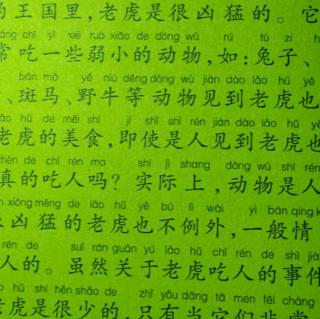 的王国里,老虎是很凶猛的。它
áng chī yì xiē ruò xiǎo de dòng wù rú tù zi
常吃一些弱小的动物,如:兔子、
bān mǎ yě niú děng dòng wù jiàn dào lǎo hǔ yě
、斑马、野牛等动物见到老虎也
hǔ de měi shí jí shǐ shì rén jiàn dào lǎo hǔ yě
老虎的美食,即使是人见到老虎也
zhēn de chī rén ma shí jì shang dòng wù shì rén
真的吃人吗?实际上,动物是人
xiōng měng de lǎo hǔ yě bú lì wài yì bān qíng k
凶猛的老虎也不例外,一般情
rén de suī rán guān yú lǎo hǔ chī rén de shì jiàn
人的。虽然关于老虎吃人的事件
hǔ shì hěn shǎo de zhǐ yǒu dāng tā men fēi cháng
老虎是很少的,只有当它们非常